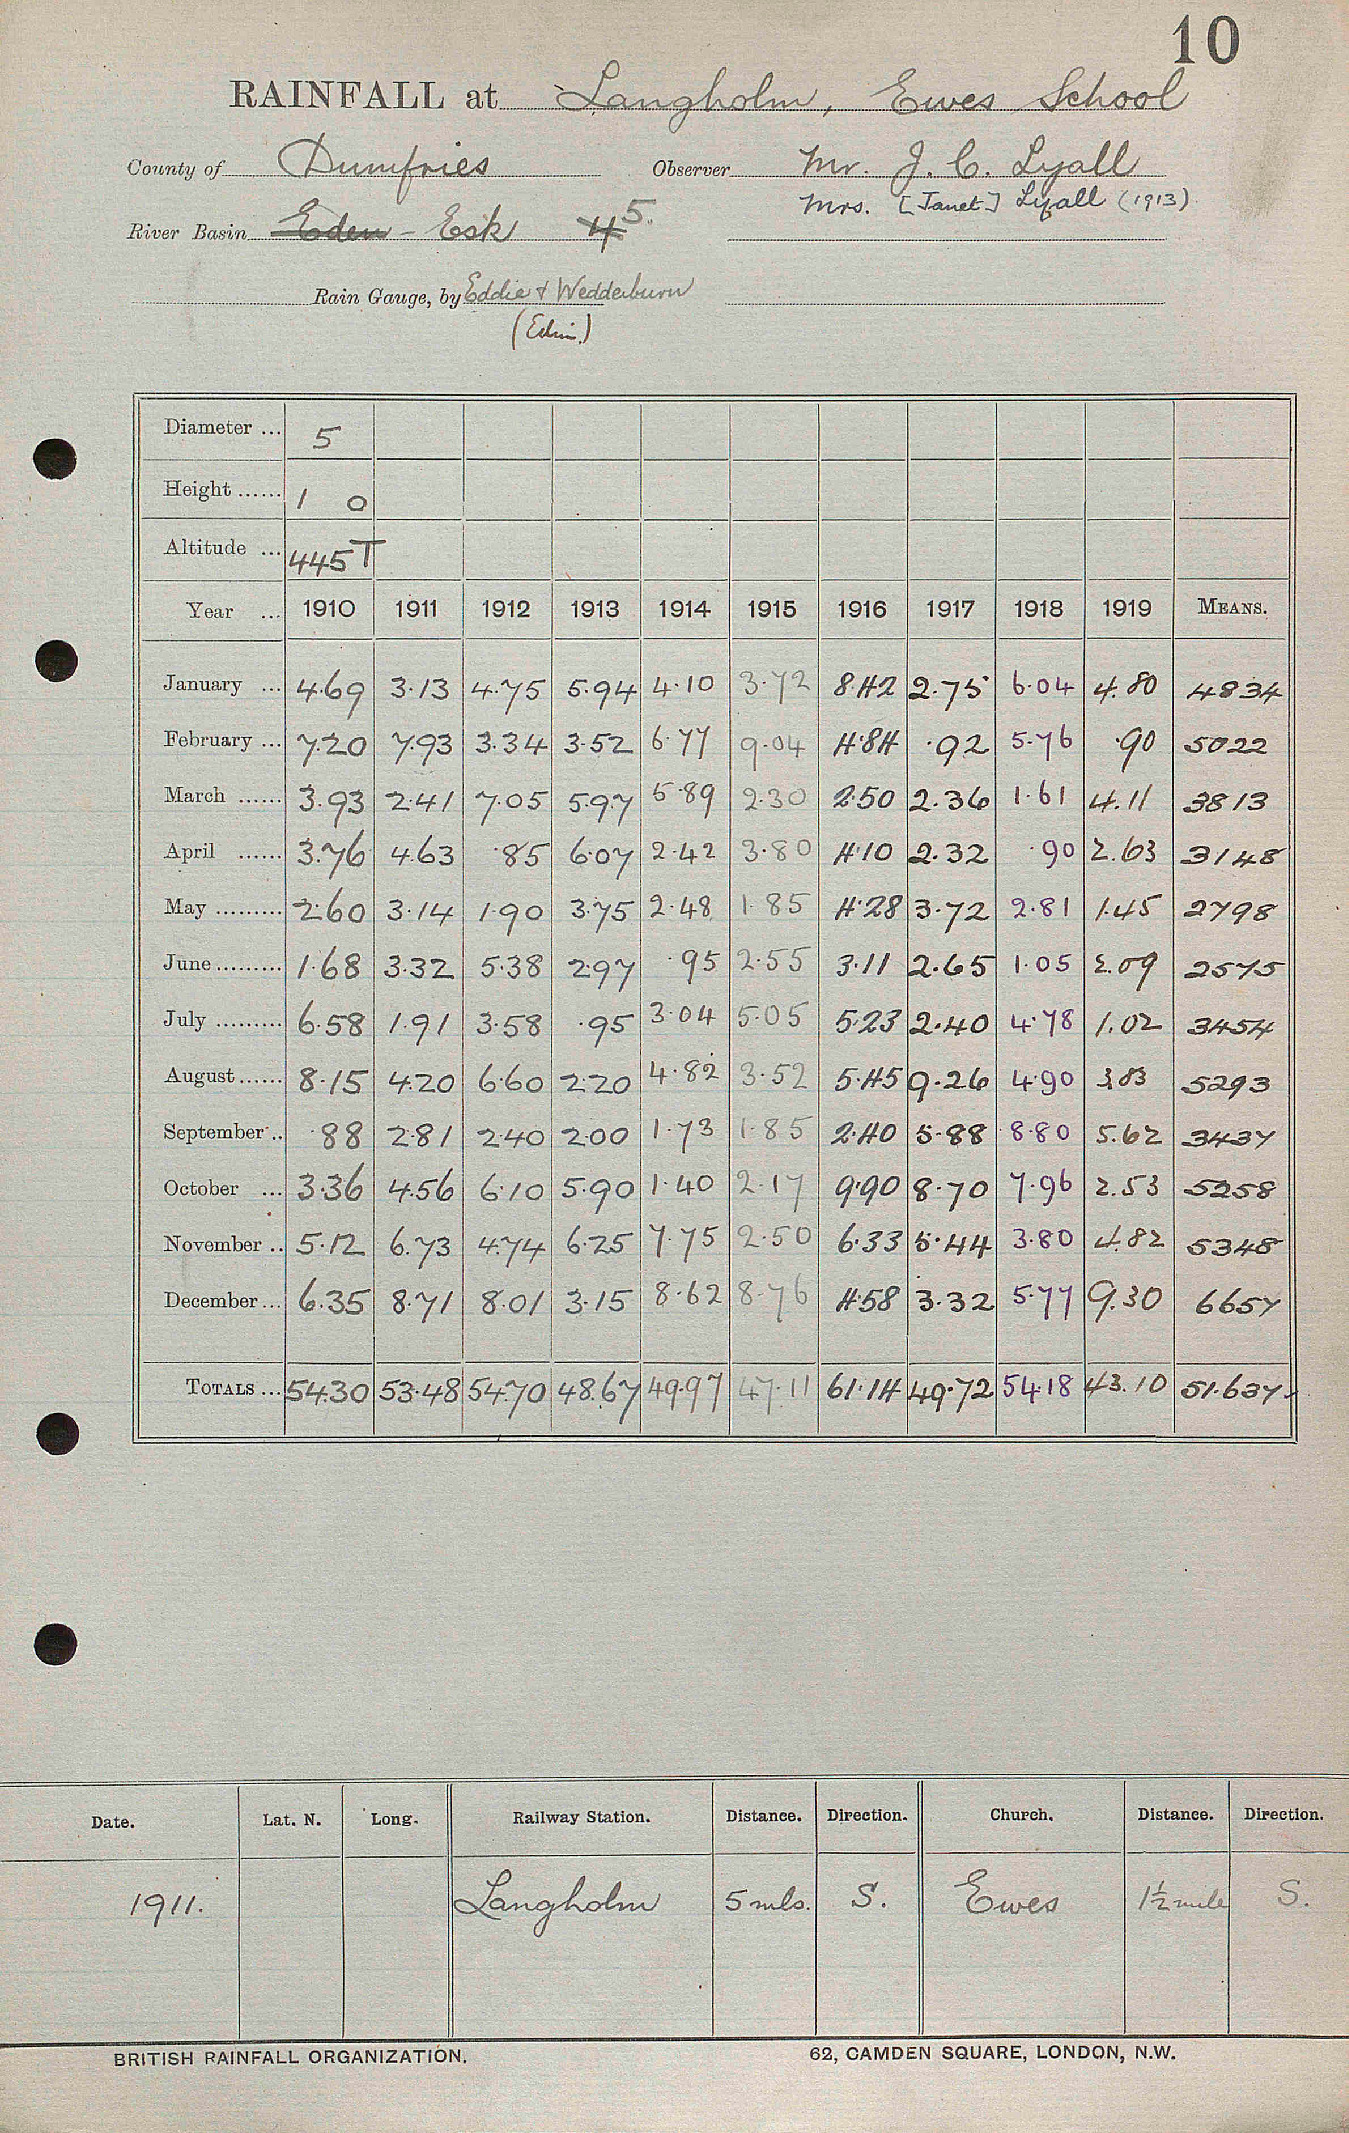 10
RAINFALL at Langholm, Ewes School
County of Dumfries Observer Mr. J. C. Lyall
Mrs. [Janet] Lyall (1913)
River Basin Eden - Esk 4 5.
Rain Gauge, by Eddie & Wedderburn
(Edin.)
Diameter ... 5
Height ...... 1 0
Altitude ... 445 T
Year ... 1910 1911 1912 1913 1914 1915 1916 1917 1918 1919 MEANS.
January ... 4.69 3.13 4.75 5.94 4.10 3.72 8.42 2.75 6.04 4.80 4834
February ... 7.20 7.93 3.34 3.52 6.77 9.04 4.84 .92 5.76 .90 5022
March ...... 3.93 2.41 7.05 5.97 5.89 2.30 2.50 2.36 1.61 4.11 3813
April ...... 3.76 4.63 .85 6.07 2.42 3.80 4.10 2.32 .90 2.63 3148
May ......... 2.60 3.14 1.90 3.75 2.48 1.85 4.28 3.72 2.81 1.45 2798
June ......... 1.68 3.32 5.38 2.97 .95 2.55 3.11 2.65 1.05 2.09 2575
July ......... 6.58 1.91 3.58 .95 3.04 5.05 5.23 2.40 4.78 1.02 3454
August ...... 8.15 4.20 6.60 2.20 4.82 3.52 5.45 9.26 4.90 3.83 5293
September .. .88 2.81 2.40 2.00 1.73 1.85 2.40 5.88 8.80 5.62 3437
October ... 3.36 4.56 6.10 5.90 1.40 2.17 9.90 8.70 7.96 2.53 5258
November .. 5.12 6.73 4.74 6.25 7.75 2.50 6.33 5.44 3.80 4.82 5348
December ... 6.35 8.71 8.01 3.15 8.62 8.76 4.58 3.32 5.77 9.30 6657
TOTALS ... 54.30 53.48 54.70 48.67 49.97 47.11 61.14 49.72 54.18 43.10 51.637
Date. Lat. N. Long. Railway Station. Distance. Direction. Church. Distance. Direction.
1911. Langholm 5 mls. S. Ewes 1½ mile S.
BRITISH RAINFALL ORGANIZATION. 62, CAMDEN SQUARE, LONDON, N.W.